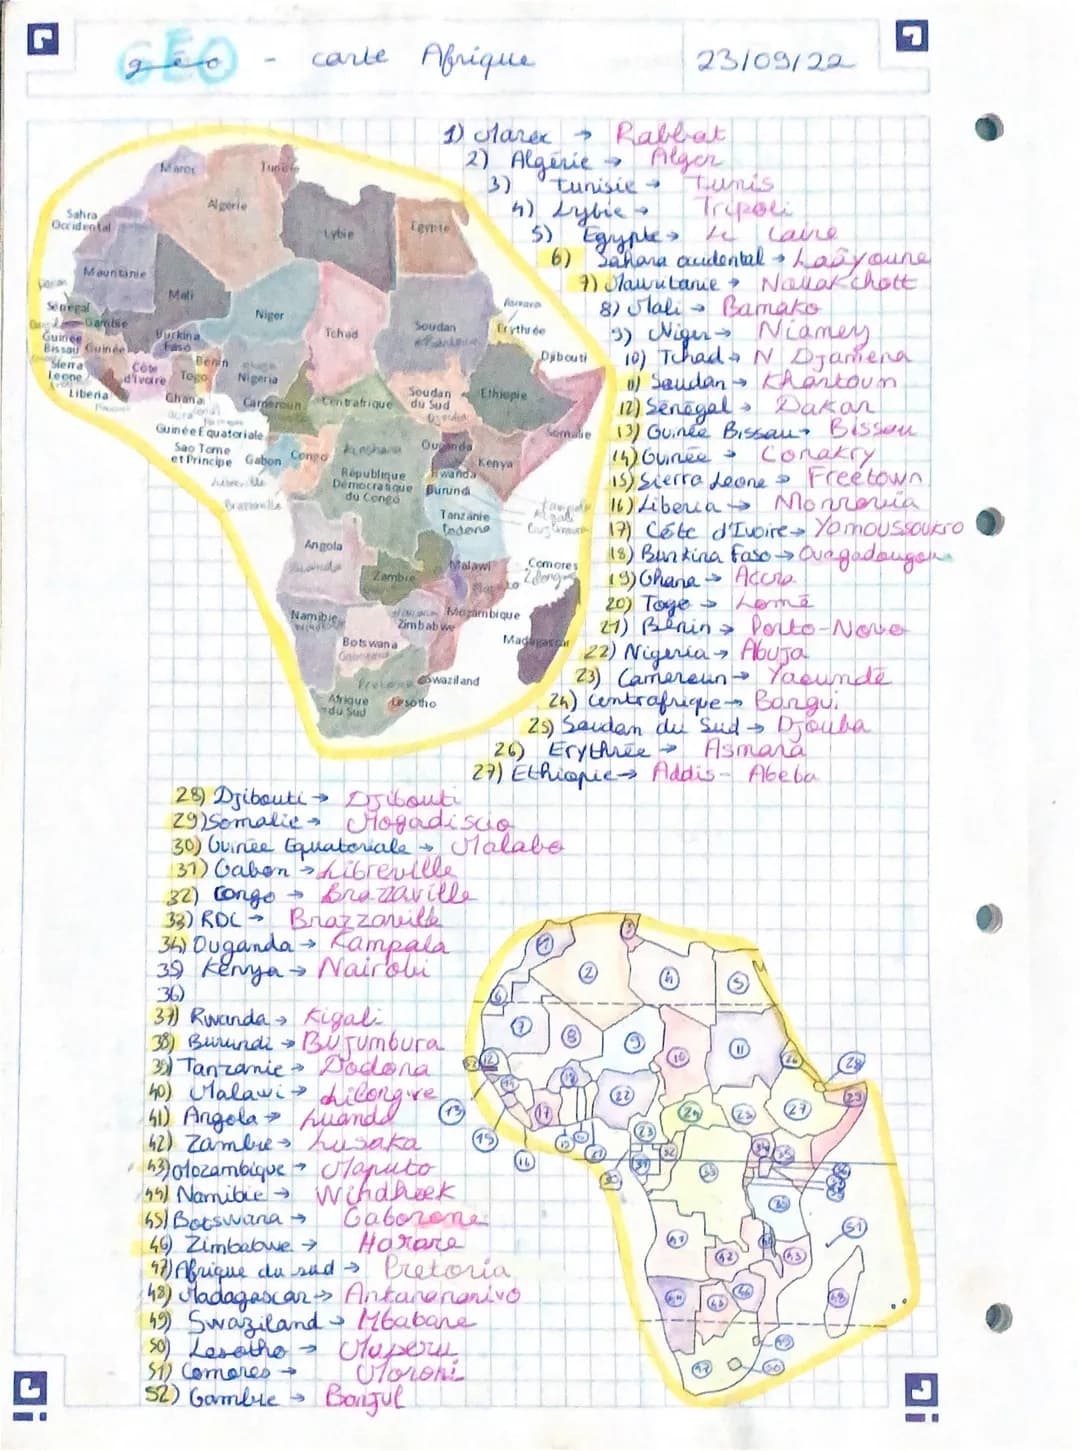 GÉO - carte Afrique
23/09/22
1) Maroc → Rabbat
2) Algérie → Alger
3) Tunisie → Tunis
4) Lybie → Tripoli
5) Egypte → Le Caire
6) Sahara occidental → Laâyoune
7) Mauritanie → Nouakchott
8) Mali → Bamako
9) Niger → Niamey
10) Tchad → N Djamena
11) Soudan → Khartoum
12) Sénégal → Dakar
13) Guinée Bissau → Bissau
14) Guinée → Conakry
15) Sierra Leone → Freetown
16) Liberia → Monrovia
17) Côte d'Ivoire → Yamoussoukro
18) Burkina Faso → Ouagadougou
19) Ghana → Accra
20) Togo → Lomé
21) Bénin → Porto-Novo
22) Nigeria → Abuja
23) Cameroun → Yaoundé
24) Centrafrique → Bangui
25) Soudan du Sud → Djouba
26) Erythrée → Asmara
27) Ethiopie → Addis-Abeba
Maroc
Tunisie
Algerie
Sahra
Occidental
Lybie
Egypte
Mauritanie
Mali
Niger
Tchad
Soudan
Erythrée
Sénégal
Gambie
Guinée
Bissau
Guinée
Burkina
Faso
Benin
Djibouti
Sierra
Leone
Côte
d'Ivoire
Togo
Nigeria
Liberia
Ghana
Cameroun
Centrafrique
Soudan
du Sud
Ethiopie
Somalie
Guinée Equatoriale
Sao Tome
et Principe
Gabon
Congo
Kinshasa
Ouganda
Kenya
République
Démocratique
du Congo
Rwanda
Burundi
Libreville
Brazzaville
Tanzanie
Dodoma
Angola
Luanda
Zambie
Malawi
Comores
Namibie
Zimbabwe
Mozambique
Botswana
Madagascar
Pretoria
Swaziland
Afrique
du Sud
Lesotho
28) Djibouti → Djibouti
29) Somalie → Mogadiscio
30) Guinée Equatoriale → Malabo
31) Gabon → Libreville
32) Congo → Brazzaville
33) RDC → Brazzaville
34) Ouganda → Kampala
35) Kenya → Nairobi
36)
37) Rwanda → Kigali
38) Burundi → Bujumbura
39) Tanzanie → Dodona
40) Malawi → Lilongwe
41) Angola → Luanda
42) Zambie → Lusaka
43) Mozambique → Maputo
44) Namibie → Windheek
45) Botswana → Gaborone
46) Zimbabwe → Harare
47) Afrique du sud → Pretoria
48) Madagascar → Antananarivo
49) Swaziland → Mbabane
50) Lesotho → Maperu
51) Comores → Moroni
52) Gambie → Banjul
1
3
2
4
5
6
7
8
9
10
11
12
26
28
29
14
18
22
24
25
27
13
17
15
16
23
33
30
51
41
42
43
44
45
46
48
49
47
50